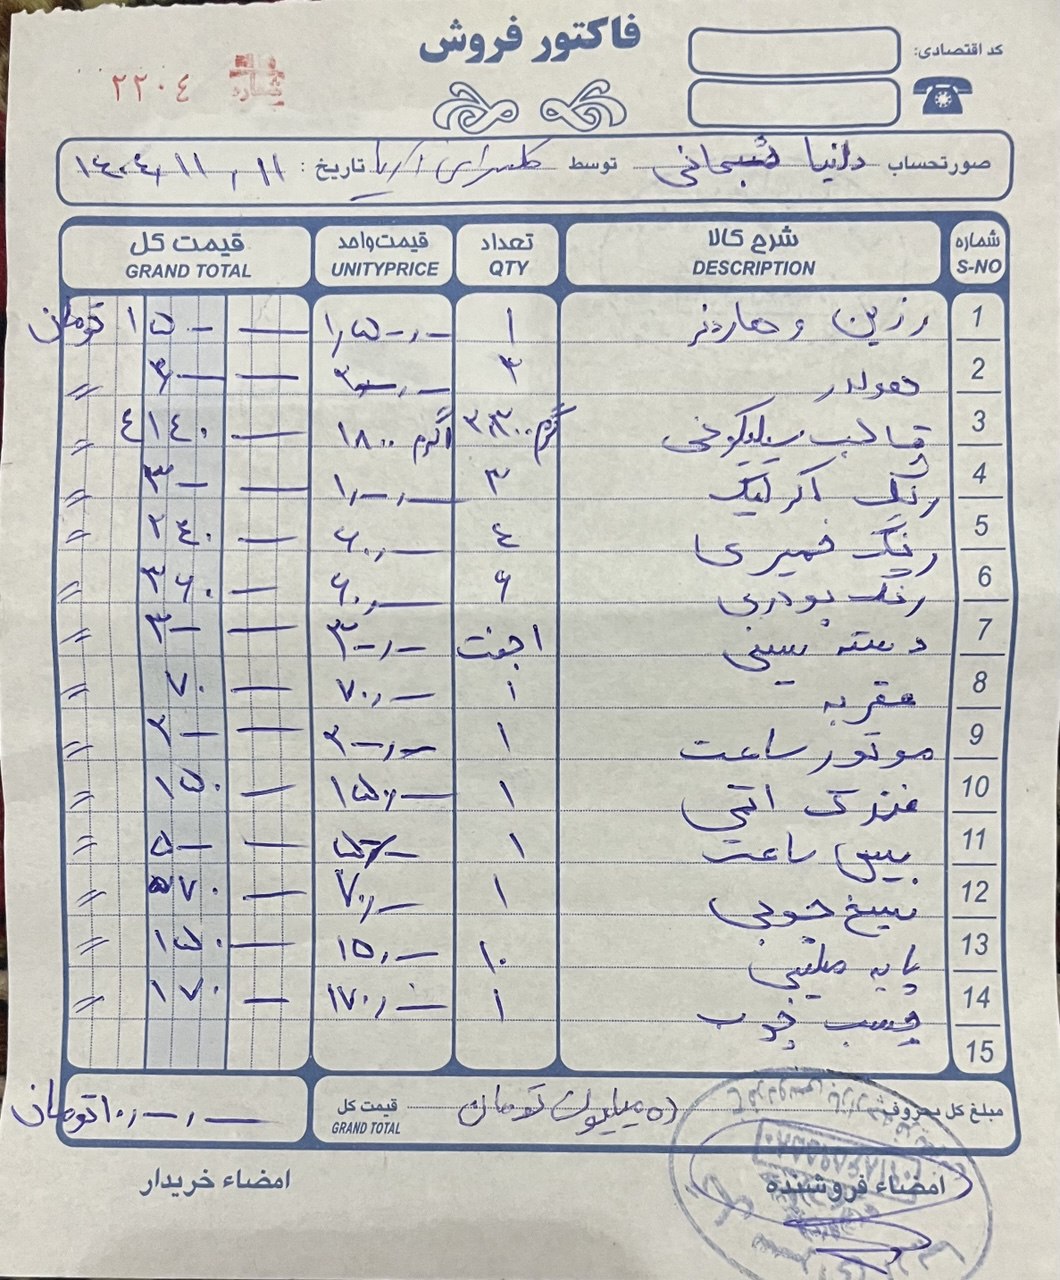 فاکتور فروش
کد اقتصادی:
شماره ۲۲۰۴
صورتحساب دانیا شعبانی توسط گلسرای آریا تاریخ: ۱۴۰۴,۱۱,۱۱
شماره شرح کالا تعداد قیمت واحد قیمت کل
S-NO DESCRIPTION QTY UNITYPRICE GRAND TOTAL
1 رزین و هاردنر ۱ ۱,۵۰۰,۰۰۰ ۱۵۰۰ — تومان
2 هولدر ۳ ۲۰۰,۰۰۰ ۶۰۰ — //
3 قالب سیلیکونی ۲,۳۰۰ گرم ۱گرم ۱۸۰۰ ۴۱۴۰ — //
4 رنگ اکرلیک ۳ ۱۰۰,۰۰۰ ۳۰۰ — //
5 رنگ خمیری ٤ ۶۰,۰۰۰ ۲٤۰ — //
6 رنگ پودری ۶ ۶۰,۰۰۰ ۳۶۰ — //
7 دسته سینی ۱جفت ۳۰۰,۰۰۰ ۳۰۰ — //
8 عقربه ۱ ۷۰,۰۰۰ ۷۰ — //
9 موتور ساعت ۱ ۲۰۰,۰۰۰ ۲۰۰ — //
10 فندک اتمی ۱ ۱۵۰,۰۰۰ ۱۵۰ — //
11 بیس ساعت ۱ ۵۰۰ — //
12 سیخ چوبی ۱ ۷۰,۰۰۰ ۷۰ — //
13 پایه ۱۰ ۱۵,۰۰۰ ۱۵۰ — //
14 چسب چوب ۱ ۱۷۰,۰۰۰ ۱۷۰ — //
15
مبلغ کل بحروف ده میلیون تومان قیمت کل ۱۰,۰۰۰,۰۰۰ تومان
GRAND TOTAL
امضاء فروشنده امضاء خریدار